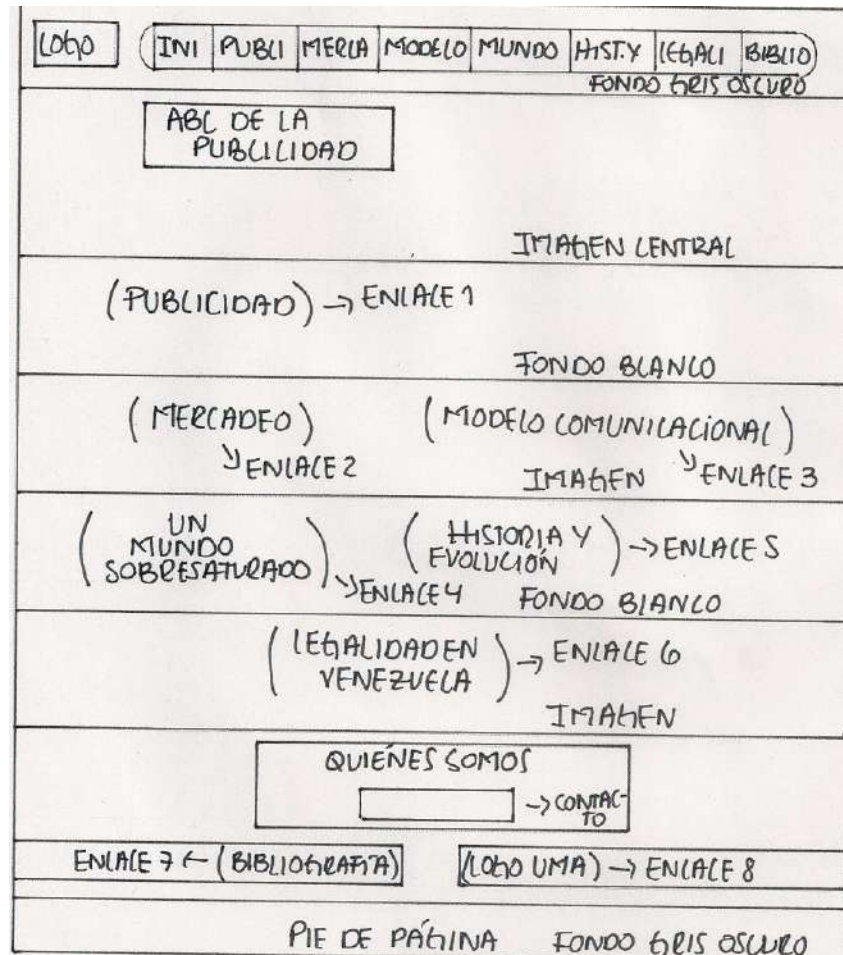 LOGO INI PUBLI MERCA MODELO MUNDO HIST.Y LEGALI BIBLIO
FONDO GRIS OSCURO
ABC DE LA
PUBLICIDAD
IMAGEN CENTRAL
(PUBLICIDAD) → ENLACE 1
FONDO BLANCO
(MERCADEO) (MODELO COMUNICACIONAL)
ENLACE 2 IMAGEN ENLACE 3
(UN
MUNDO
SOBRESATURADO) ENLACE 4
(HISTORIA Y
EVOLUCIÓN) → ENLACE 5
FONDO BLANCO
(LEGALIDAD EN
VENEZUELA) → ENLACE 6
IMAGEN
QUIÉNES SOMOS
→ CONTAC-
TO
ENLACE 7 ← (BIBLIOGRAFÍA) (LOGO UMA) → ENLACE 8
PIE DE PÁGINA FONDO GRIS OSCURO